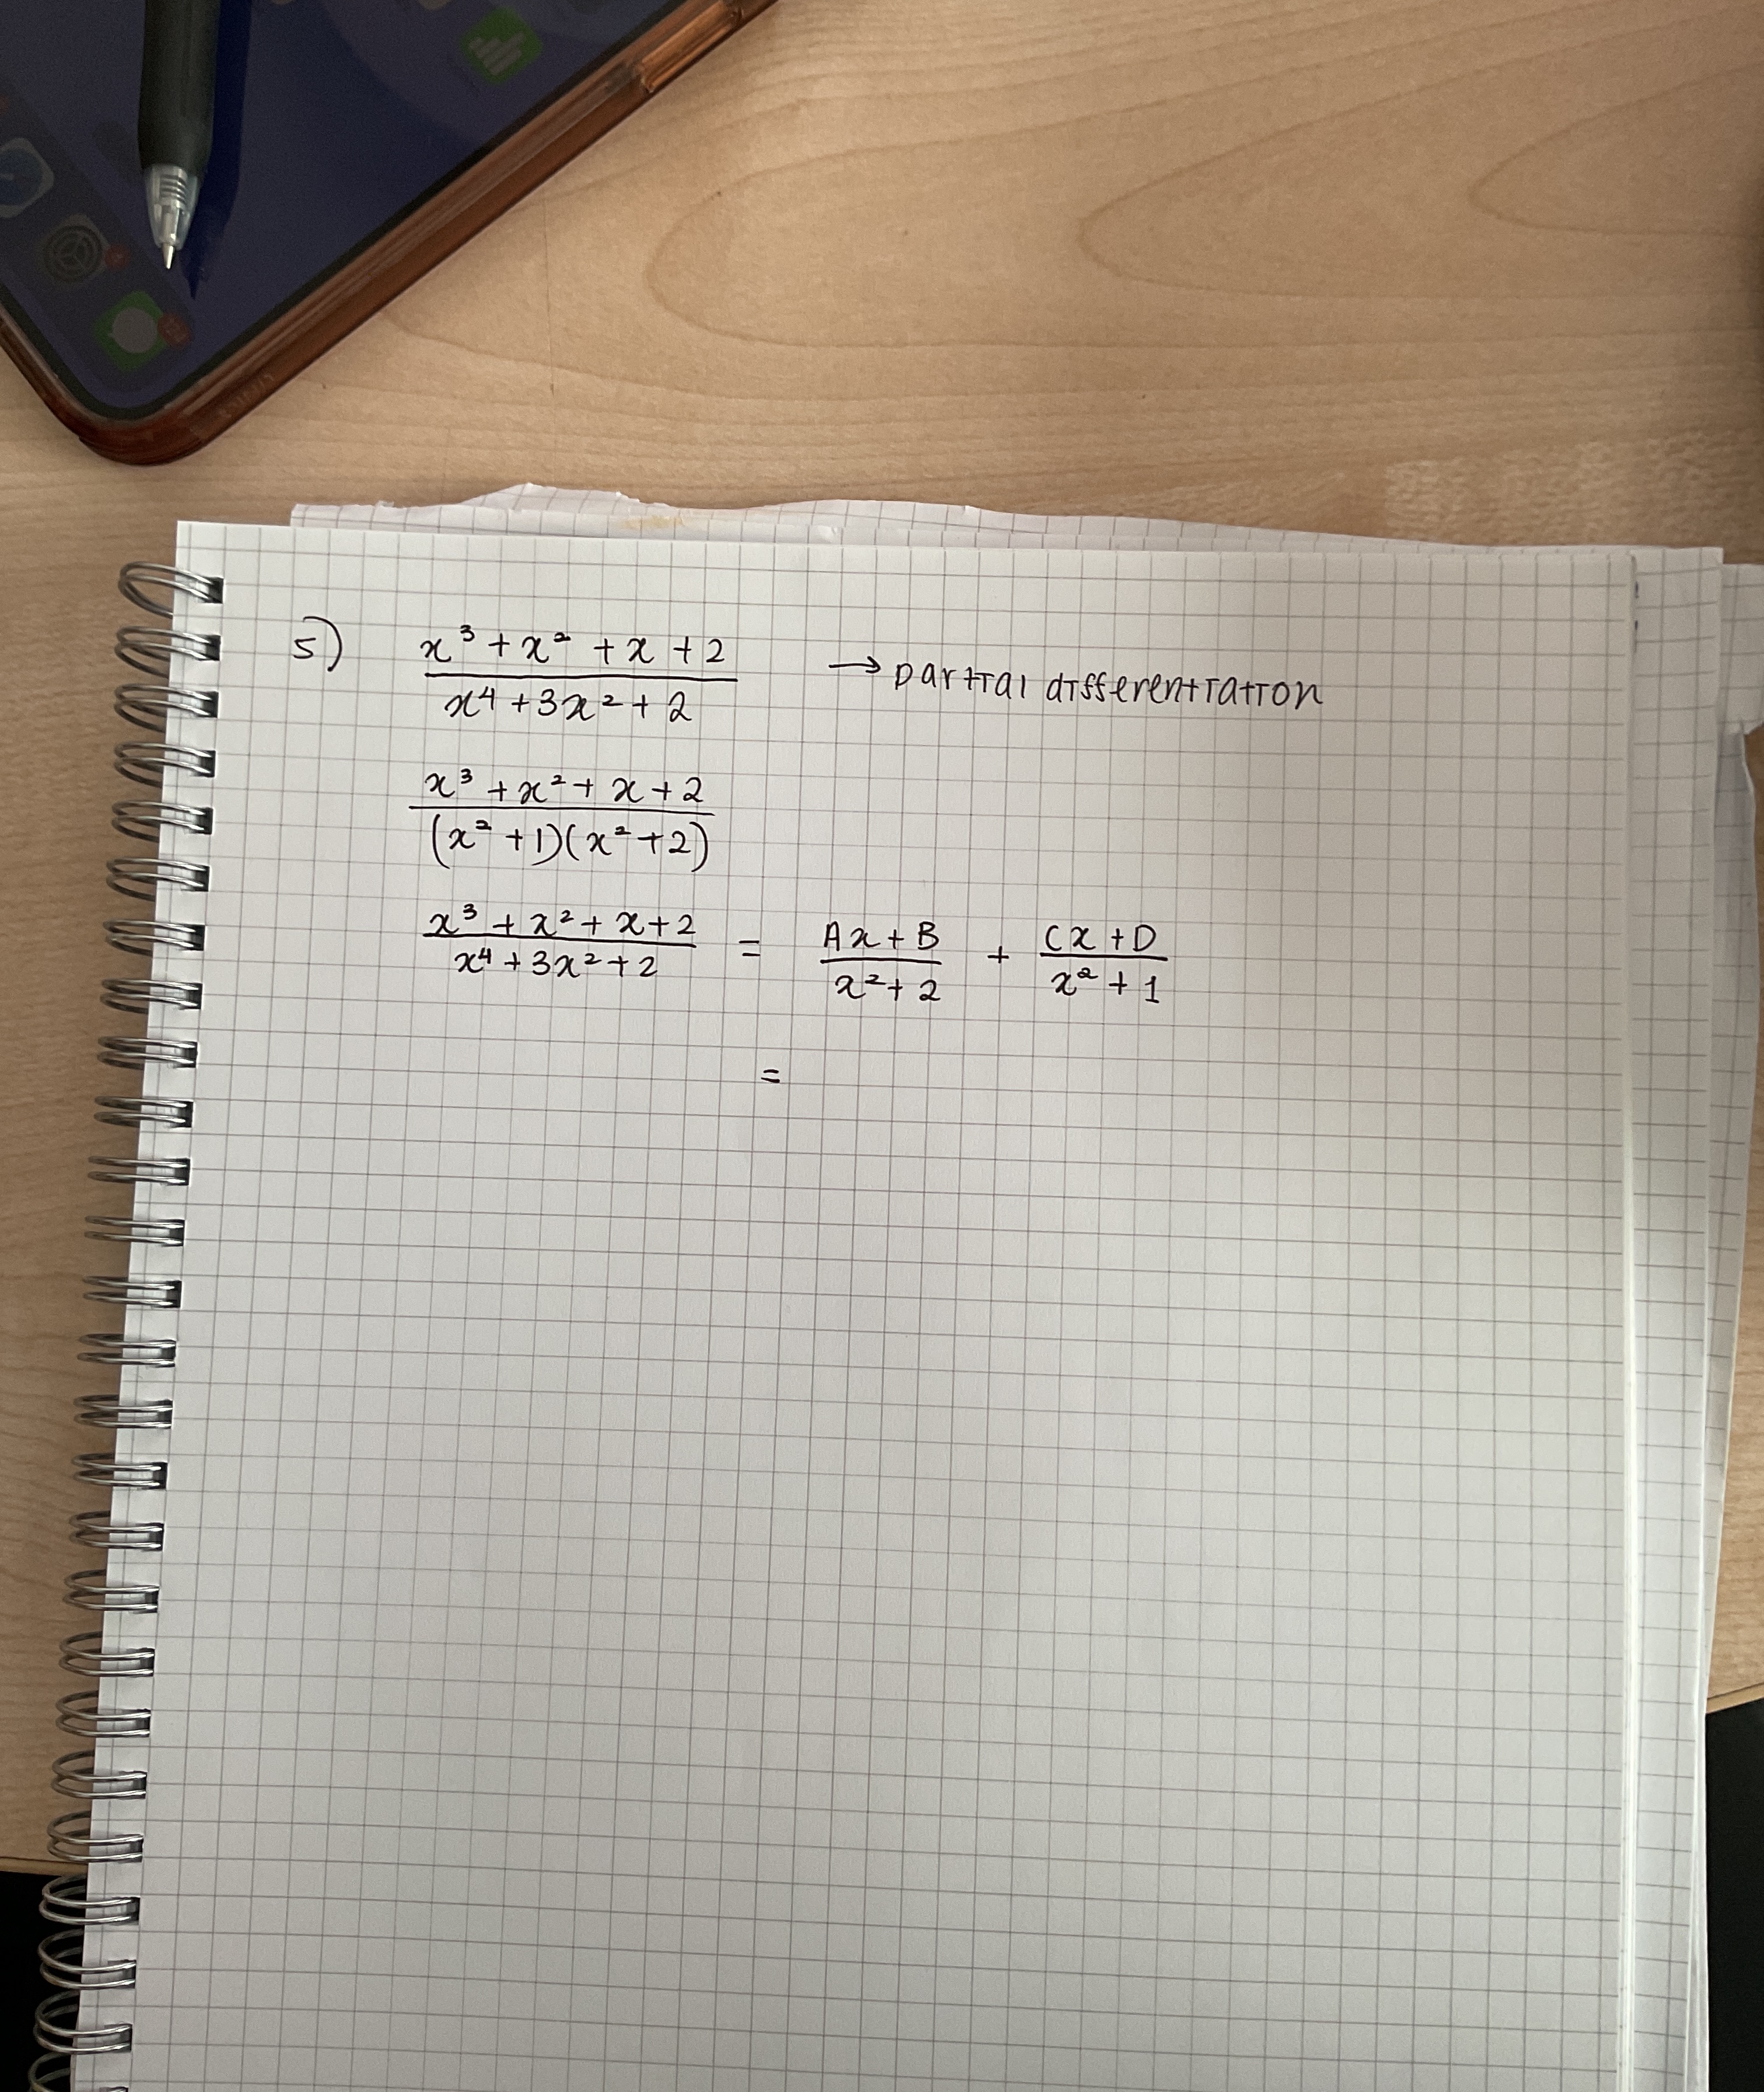 5) x³ + x² + x + 2 / x⁴ + 3x² + 2 → partial differentiation
x³ + x² + x + 2 / (x² + 1)(x² + 2)
x³ + x² + x + 2 / x⁴ + 3x² + 2 = Ax + B / x² + 2 + Cx + D / x² + 1
=